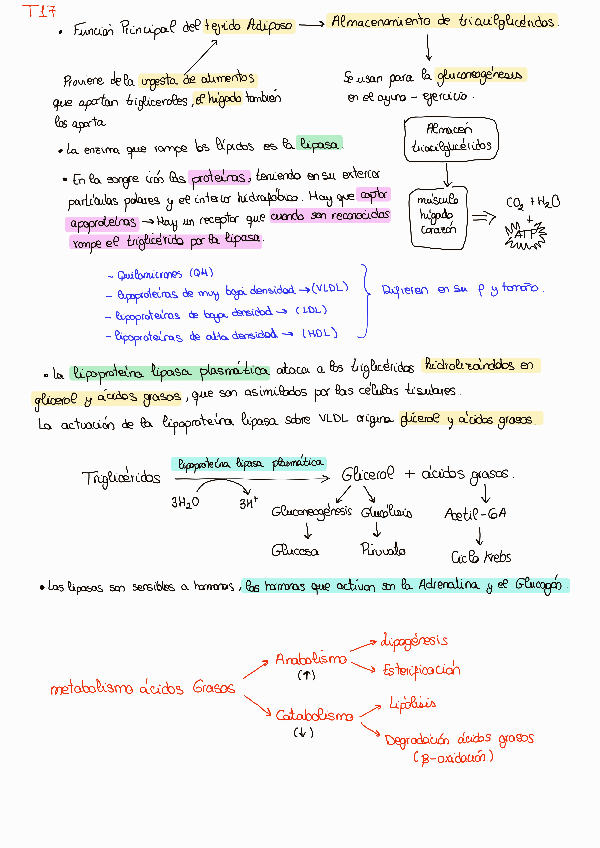 T17
• Función Principal del tejido Adiposo → Almacenamiento de triacilglicéridos.
Proviene de la ingesta de alimentos
que aportan triglicéridos, el hígado también
los aporta
Se usan para la gluconeogénesis
en el ayuno - ejercicio.
• La enzima que rompe los lípidos es la lipasa.
Almacén
triacilglicéridos
• En la sangre irán las proteínas, teniendo en su exterior
partículas polares y el interior hidrofóbico. Hay que captar
apoproteínas → Hay un receptor que cuando son reconocidas
rompe el triglicérido por la lipasa.
músculo
hígado
corazón
⇒
CO2 + H2O
+
ATP
- Quilomicrones (QM)
- lipoproteínas de muy baja densidad → (VLDL)
- lipoproteínas de baja densidad → (LDL)
- lipoproteínas de alta densidad → (HDL)
Difieren en su ρ y tamaño.
• La lipoproteína lipasa plasmática ataca a los triglicéridos hidrolizándolos en
glicerol y ácidos grasos, que son asimilados por las células tisulares.
La actuación de la lipoproteína lipasa sobre VLDL origina glicerol y ácidos grasos.
lipoproteína lipasa plasmática
Triglicéridos → Glicerol + ácidos grasos.
3H2O 3H+
Gluconeogénesis Glucólisis Acetil-CoA
Glucosa Piruvato Ciclo Krebs
• Las lipasas son sensibles a hormonas, las hormonas que activan son la Adrenalina y el Glucagón.
metabolismo ácidos Grasos
Anabolismo
(↑)
Lipogénesis
Esterificación
Catabolismo
(↓)
Lipólisis
Degradación ácidos grasos
(β-oxidación)